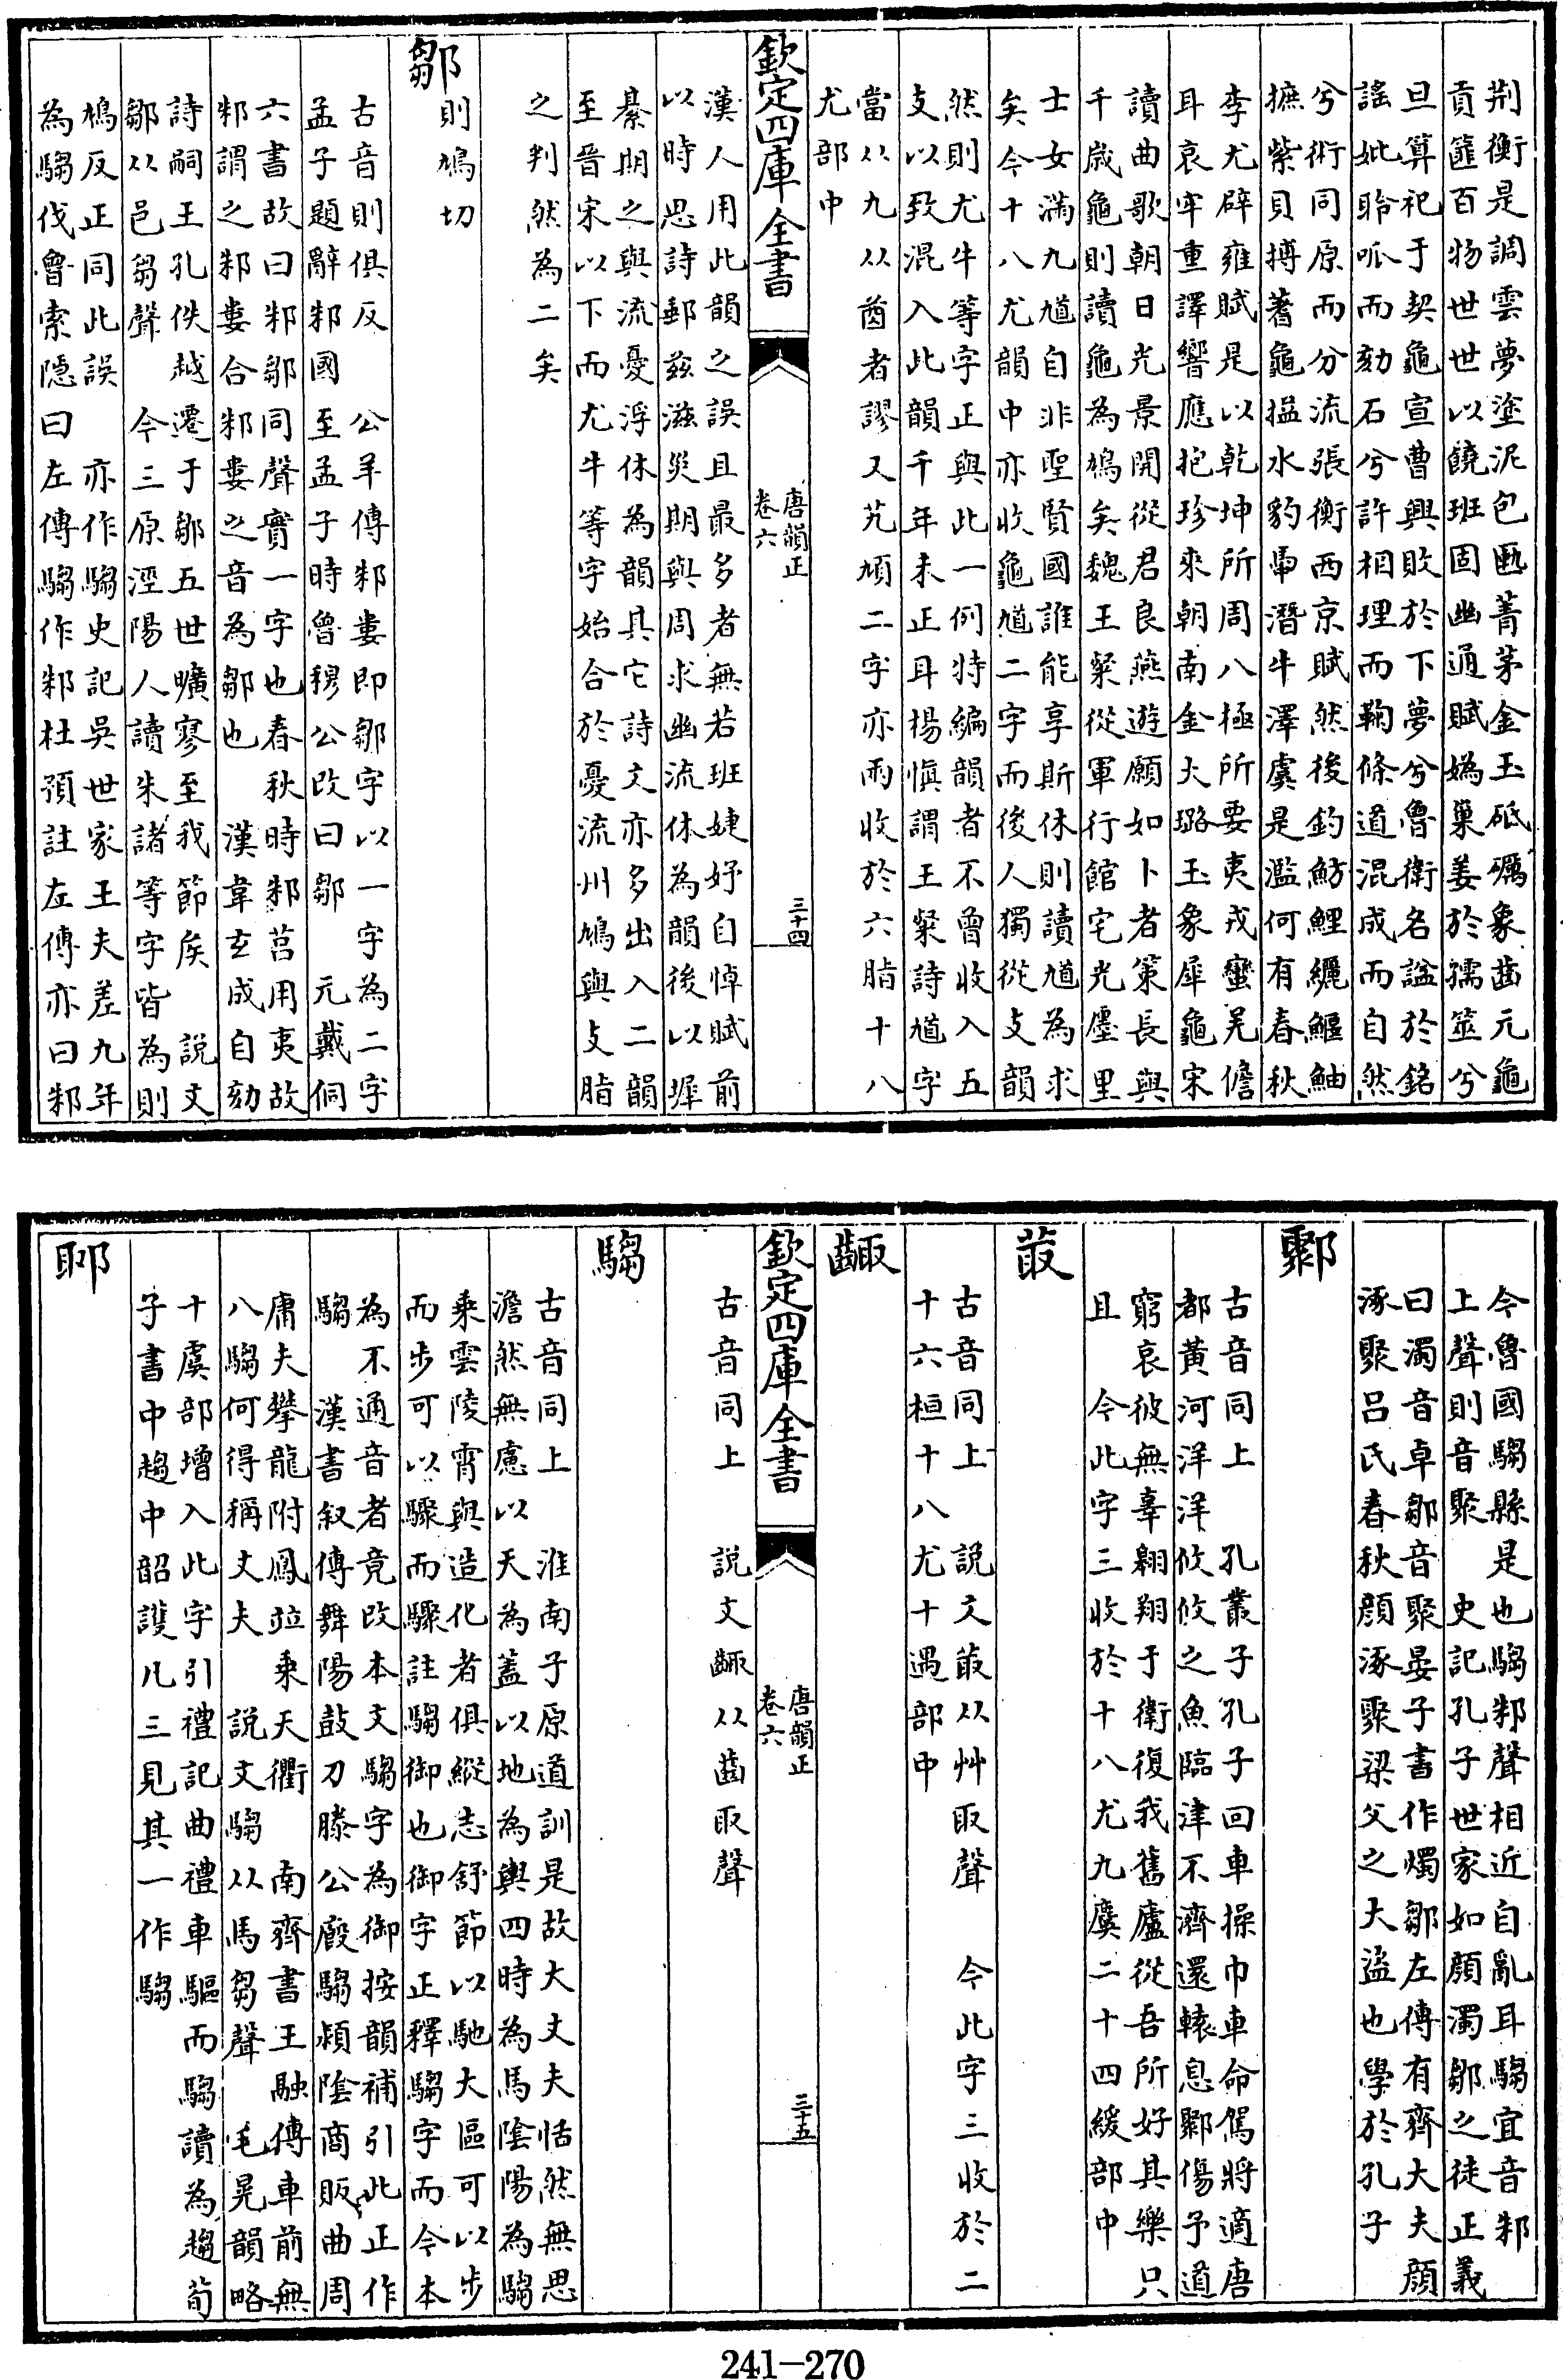 荆衡是調雲夢塗泥包匭菁茅金玉砥礪象齒元龜
貢篚百物世世以饒班固幽通賦媯巢姜於孺筮兮
旦算祀于契龜宣曹興敗於下夢兮魯衛名諡於銘
謠妣聆呱而刻石兮許相理而鞠條道混成而自然
兮術同原而分流張衡西京賦然後釣魴鯉纚鰋鮋
摭紫貝搏耆龜搤水豹馽潛牛澤虞是濫何有春秋
李尤辟雍賦是以乾坤所周八極所要夷戎蠻羌儋
耳哀牢重譯響應抱珍來朝南金大璐玉象犀龜宋
讀曲歌朝日光景開從君良燕遊願如卜者策長與
千歲龜則讀龜為鳩矣魏王粲從軍行館宅充廛里
士女滿九馗自非聖賢國誰能享斯休則讀馗為求
矣今十八尤韻中亦收龜馗二字而後人獨從攴韻
然則尤牛等字正與此一例特編韻者不曾收入五
攴以致混入此韻千年未正耳楊慎謂王粲詩馗字
當从九从酋者謬又艽頄二字亦兩收於六脂十八
尤部中
欽定四庫全書
唐韻正
卷六
三十四
漢人用此韻之誤且最多者無若班婕妤自悼賦前
以時思詩郵兹滋災期與周求幽流休為韻後以墀
綦期之與流憂浮休為韻具它詩文亦多出入二韻
至晉宋以下而尤牛等字始合於憂流州鳩與攴脂
之判然為二矣
鄒
則鳩切
古音則俱反 公羊傳邾婁即鄒字以一字為二字
孟子題辭邾國至孟子時魯穆公改曰鄒 元戴侗
六書故曰邾鄒同聲實一字也春秋時邾莒用夷故
邾謂之邾婁合邾婁之音為鄒也 漢韋玄成自劾
詩嗣王孔佚越遷于鄒五世曠寥至我節矦 説文
鄒从邑芻聲 今三原涇陽人讀朱諸等字皆為則
鳩反正同此誤 亦作騶史記吳世家王夫差九年
為騶伐魯索隱曰左傳騶作邾杜預註左傳亦曰邾
今魯國騶縣是也騶邾聲相近自亂耳騶宜音邾
上聲則音聚 史記孔子世家如顔濁鄒之徒正義
曰濁音卓鄒音聚晏子書作燭鄒左傳有齊大夫顔
涿聚吕氏春秋顔涿聚梁父之大盜也學於孔子
鄹
古音同上 孔叢子孔子回車操巾車命駕將適唐
都黃河洋洋攸攸之魚臨津不濟還轅息鄹傷予道
窮哀彼無辜翱翔于衛復我舊廬從吾所好其樂只
且 今此字三收於十八尤九麌二十四緩部中
菆
古音同上 説文菆从艸取聲 今此字三收於二
十六桓十八尤十遇部中
齱
古音同上 説文齱从齒取聲
欽定四庫全書
唐韻正
卷六
三十五
騶
古音同上 淮南子原道訓是故大丈夫恬然無思
澹然無慮以天為蓋以地為輿四時為馬陰陽為騶
乘雲陵霄與造化者俱縱志舒節以馳大區可以步
而步可以驟而驟註騶御也御字正釋騶字而今本
為不通音者竟改本文騶字為御按韻補引此正作
騶 漢書叙傳舞陽鼓刀滕公廄騶潁陰商販曲周
庸夫攀龍附鳳竝乘天衢 南齊書王融傳車前無
八騶何得稱丈夫 説文騶从馬芻聲 毛晃韻略
十虞部增入此字引禮記曲禮車驅而騶讀為趨荀
子書中趨中韶護凡三見其一作騶
郰
241-270